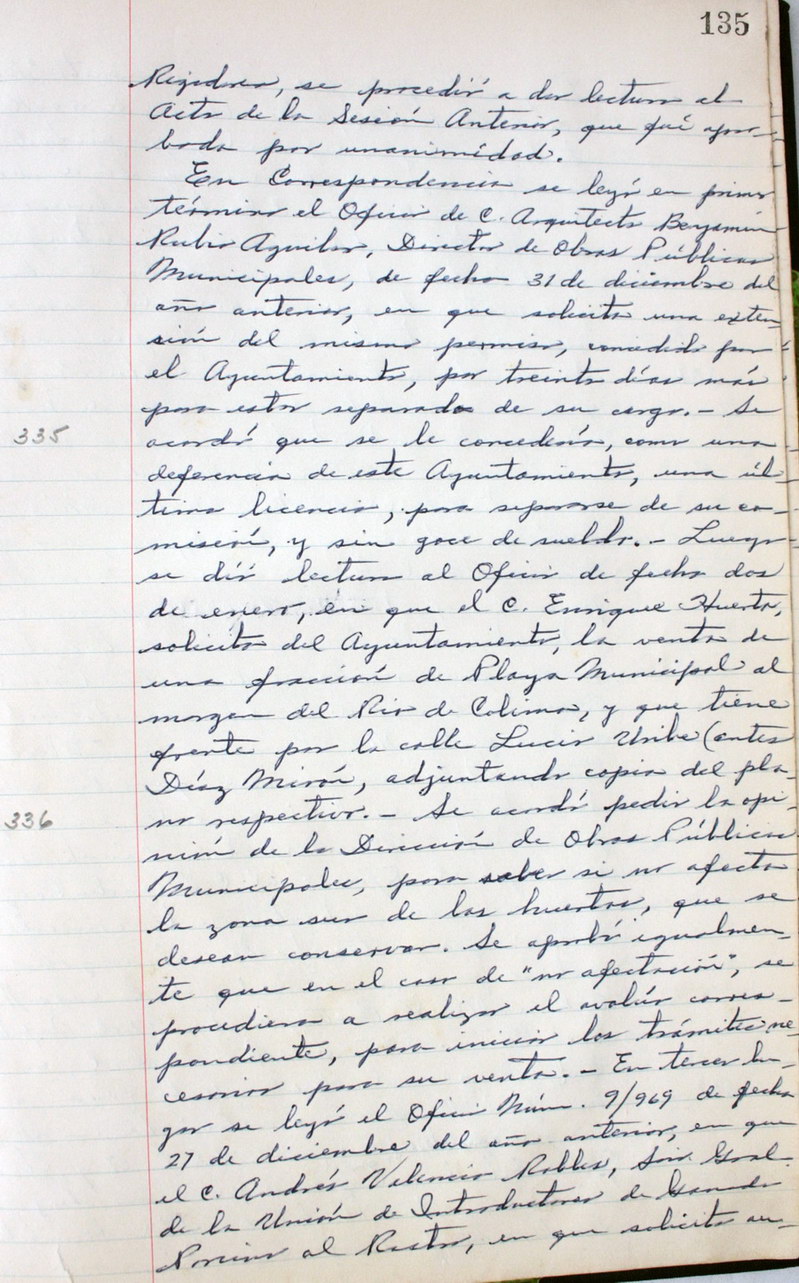 135
Regidores, se procedió a dar lectura al
Acta de la Sesión Anterior, que fué apro-
bada por unanimidad.
En Correspondencia se leyó en primer
término el Oficio de C. Arquitecto Benjamín
Rubio Aguilar, Director de Obras Públicas
Municipales, de fecha 31 de diciembre del
año anterior, en que solicita una exten-
sión del mismo permiso, concedido por
el Ayuntamiento, por treinta días más
para estar separado de su cargo. - Se
335
acordó que se le concedería, como una
deferencia de este Ayuntamiento, una úl-
tima licencia, para separarse de su co-
misión, y sin goce de sueldo. - Luego
se dió lectura al Oficio de fecha dos
de enero, en que el C. Enrique Huerta,
solicita del Ayuntamiento, la venta de
una fracción de Playa Municipal al
margen del Rio de Colima, y que tiene
frente por la calle Lucio Uribe (antes
Díaz Mirón, adjuntando copia del pla-
no respectivo. - Se acordó pedir la opi-
336
nión de la Dirección de Obras Públicas
Municipales, para saber si no afecta
la zona sur de las huertas, que se
desean conservar. Se aprobó igualmen-
te que en el caso de "no afectación", se
procediera a realizar el avalúo corres-
pondiente, para iniciar los trámites ne-
cesarios para su venta. - En tercer lu-
gar se leyó el Oficio Núm. 9/969 de fecha
27 de diciembre del año anterior, en que
el C. Andrés Valencia Robles, Srio. Gral.
de la Unión de Introductores de Ganado
Porcino al Rastro, en que solicita au-